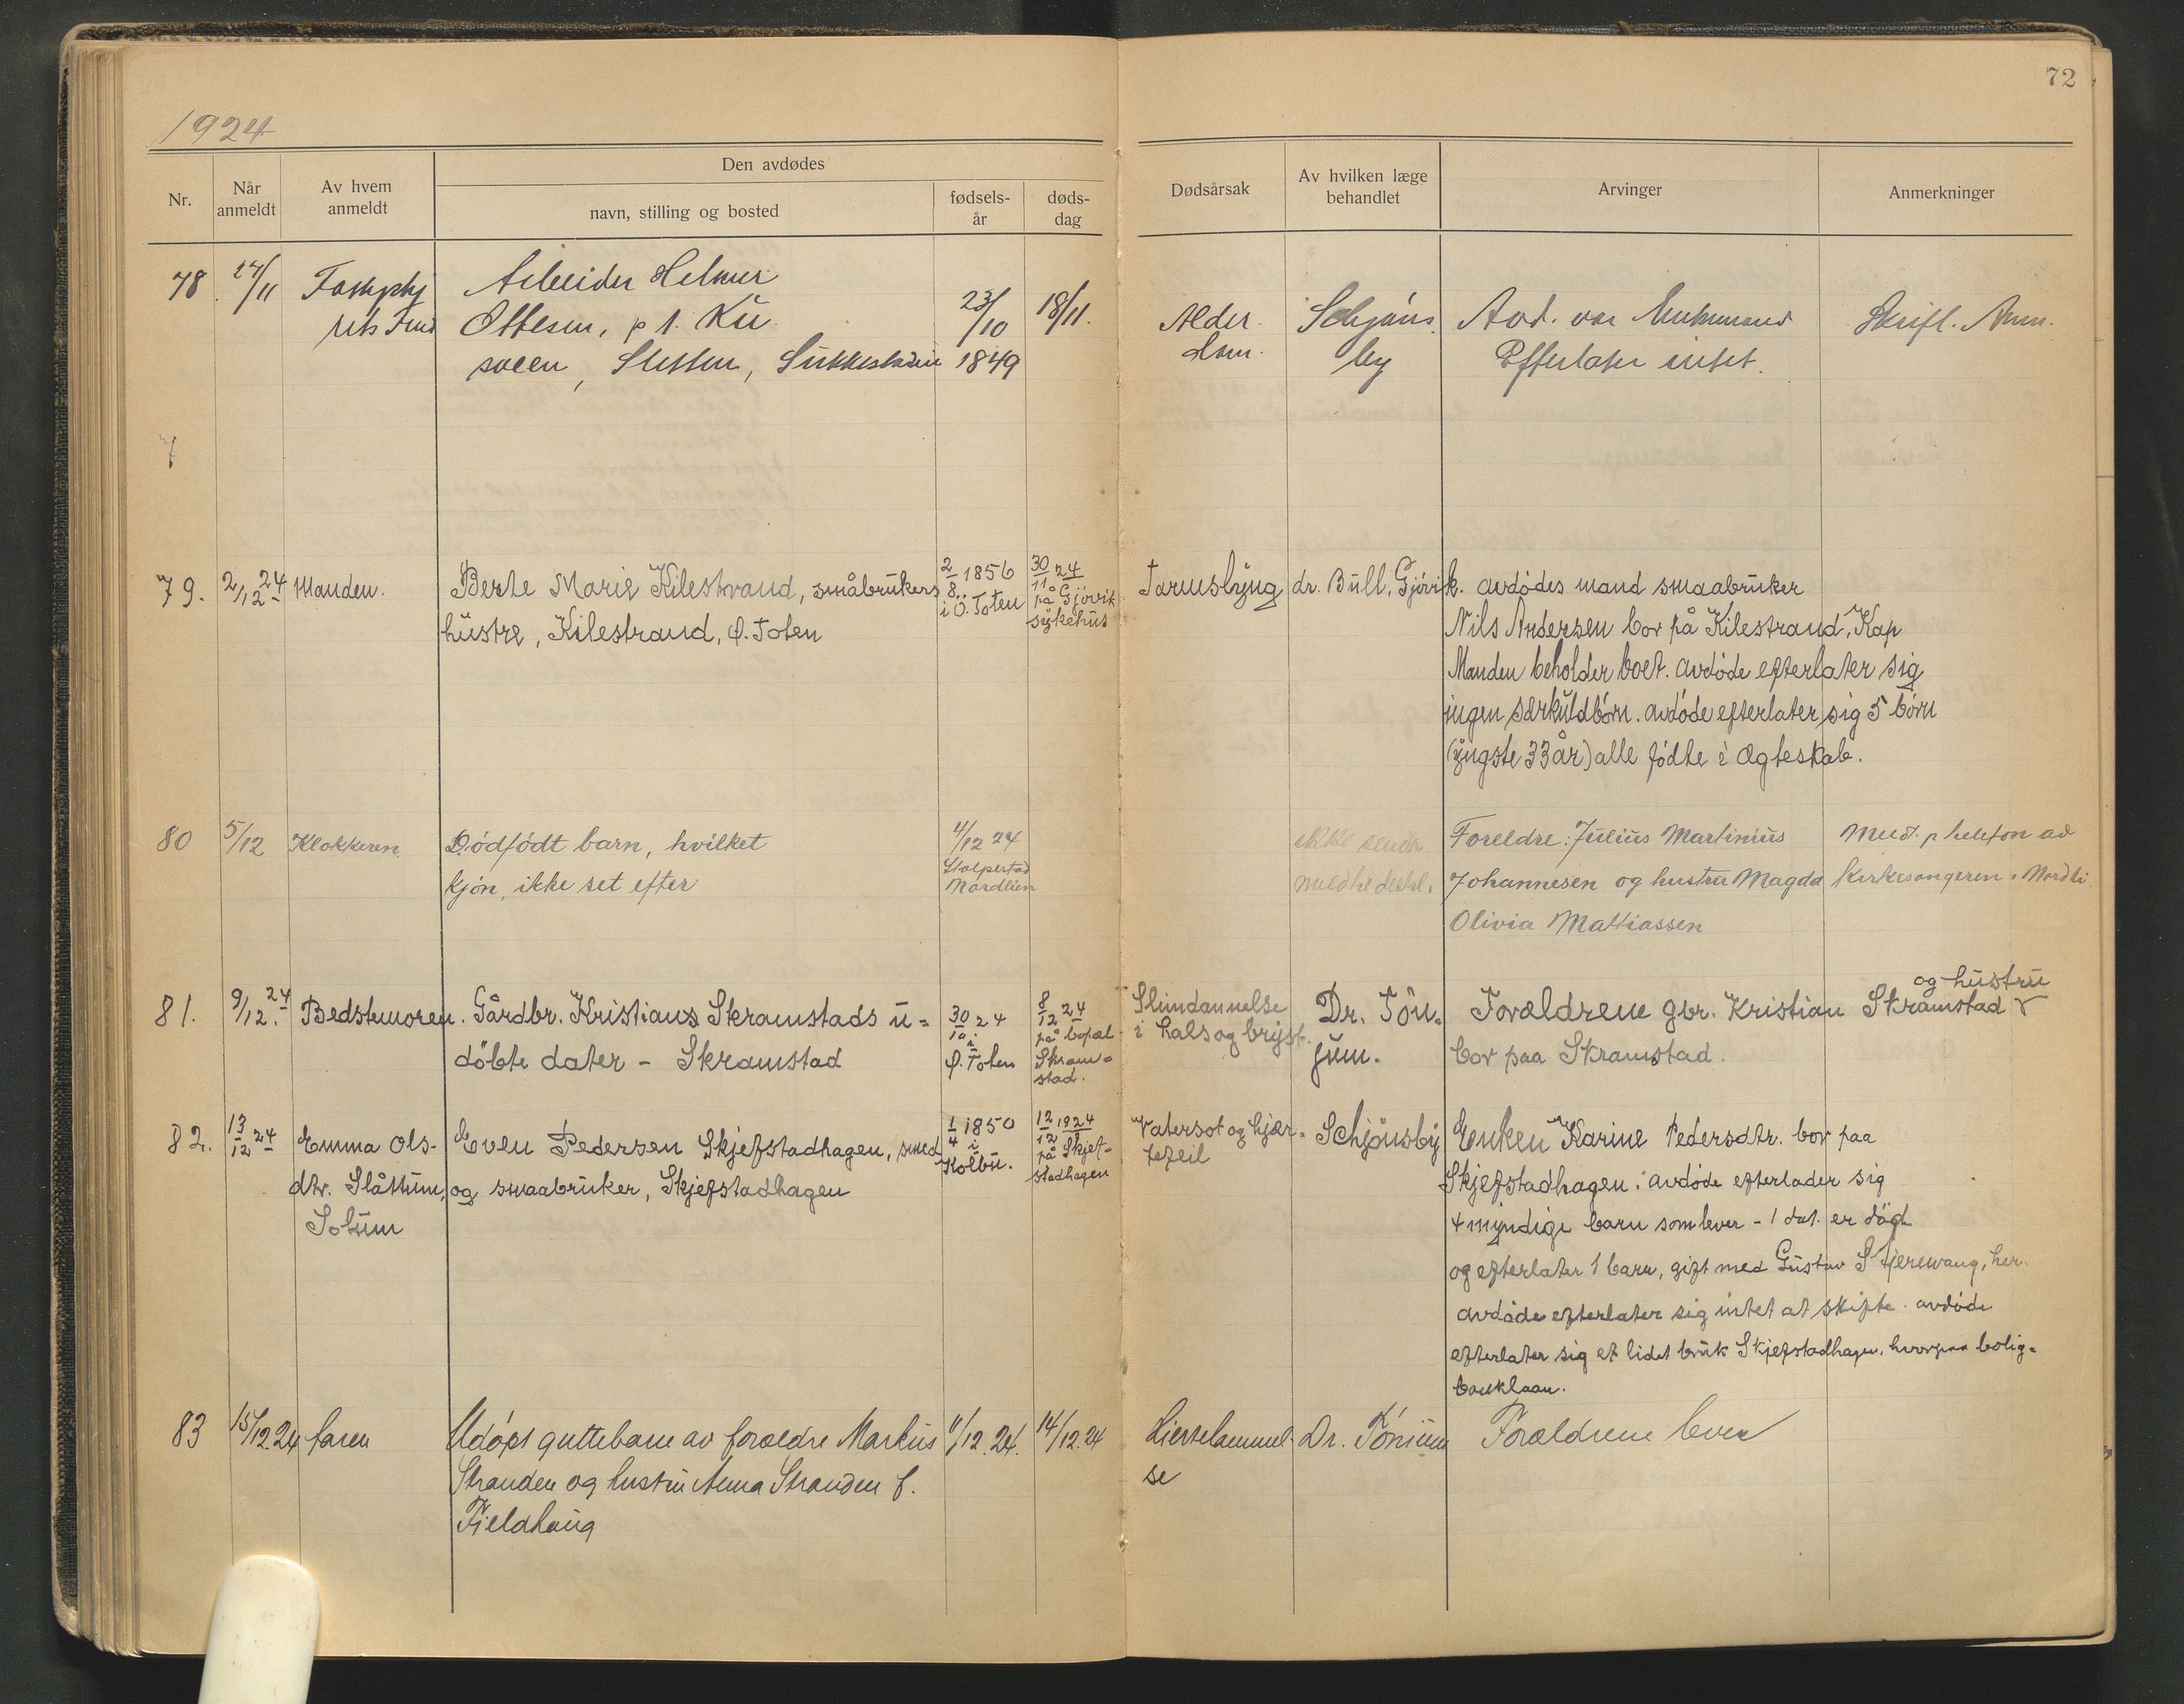 72
1924
Nr.
Når anmeldt
Av hvem anmeldt
Den avdødes
navn, stilling og bosted
fødsels-år
døds-dag
Dødsårsak
Av hvilken læge behandlet
Arvinger
Anmerkninger
78
24/11
Arbeider Helmer
Ottesen, p t. Ku
sveen, Sletten,
23/10
1849
18/11.
Alder
dom.
Schjöns
by
Avd. var Enkemand
Efterlater intet.
Skrifl. Anm.
7
79.
2/12 24
Manden.
Berte Marie Kilestrand, småbrukers
hustre, Kilestrand, Ø. Toten
2/8 1856
i Ö. Toten
30/11 24
på Gjøvik
sykehus
Tarmslyng
dr. Bull, Gjövik.
avdødes mand smaabruker
Nils Andersen bor på Kilestrand, Kap
Manden beholder boet. avdöde efterlater sig
ingen særkuldbörn. avdöde efterlater sig 5 börn
(yngste 33 år) alle födte i ægteskab.
80
5/12
Klokkeren
Dödfödt barn, hvilket
kjön, ikke set efter
4/12 24
Stolpestad
Nordlien
ikke
Foreldre: Julius Martinius
Johannesen og hustru Magda
Olivia Mattiassen
Med. p telefon av
kirkesangeren i Nordli.
81.
9/12. 24
Bedstemoren.
Gårdbr. Kristians Skramstads u=
döbte dater - Skramstad
30/10 24
i
Ø. Toten
8/12 24
på bopæl
Skram=
stad.
Slimdannelse
i hals og bryst.
Dr. Tön=
jum.
og hustru
Forældrene gbr. Kristian Skramstad
bor paa Skramstad.
82.
13/12 24
Emma Ols-
dtr. Slåttum,
Sobum
Even Pedersen Skjefstadhagen, smed
og smaabruker, Skjefstadhagen
1/4 1850
i
Kolbu.
12/12 1924
på Skjef=
stadhagen
Vatersot og hjær=
tefeil
Schjönsby
Enken Karine Pedersdtr. bor paa
Skjefstadhagen: avdöde efterlader sig
4 myndige barn som lever - 1 dat. er död
og efterlater 1 barn, gift med Gustav Stjerewang, her.
avdöde efterlater sig intet at skifte. avdöde
efterlater sig et lidet bruk Skjefstadhagen, hvorpaa bolig=
banklaan.
83
15/12.24
faren
Udöpt guttebarn av forældre Markus
Stranden og hustru Anna Stranden f.
Fjeldhaug
11/12.24.
14/12.24
se
Dr. Tönjum
Forældrene lever